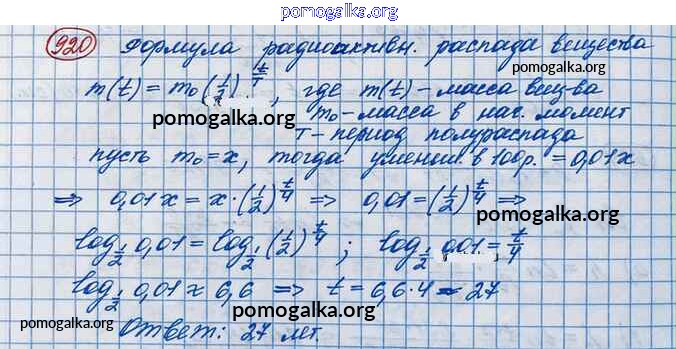 pomogalka.org
920 Формула радиоактивн. распада вещества
m(t) = m₀(1/2)^(t/T), где m(t) - масса вещ-ва
pomogalka.org
m₀ - масса в нас. момент
pomogalka.org
T - период полураспада
пусть m₀ = x, тогда уменьш. в 100 р. = 0,01x
=> 0,01x = x·(1/2)^(t/4) => 0,01 = (1/2)^(t/4) =>
pomogalka.org
log_(1/2) 0,01 = log_(1/2) (1/2)^(t/4); log_(1/2) 0,01 = t/4
log_(1/2) 0,01 ≈ 6,6 => t = 6,6·4 ≈ 27
pomogalka.org
pomogalka.org
Ответ: 27 лет.